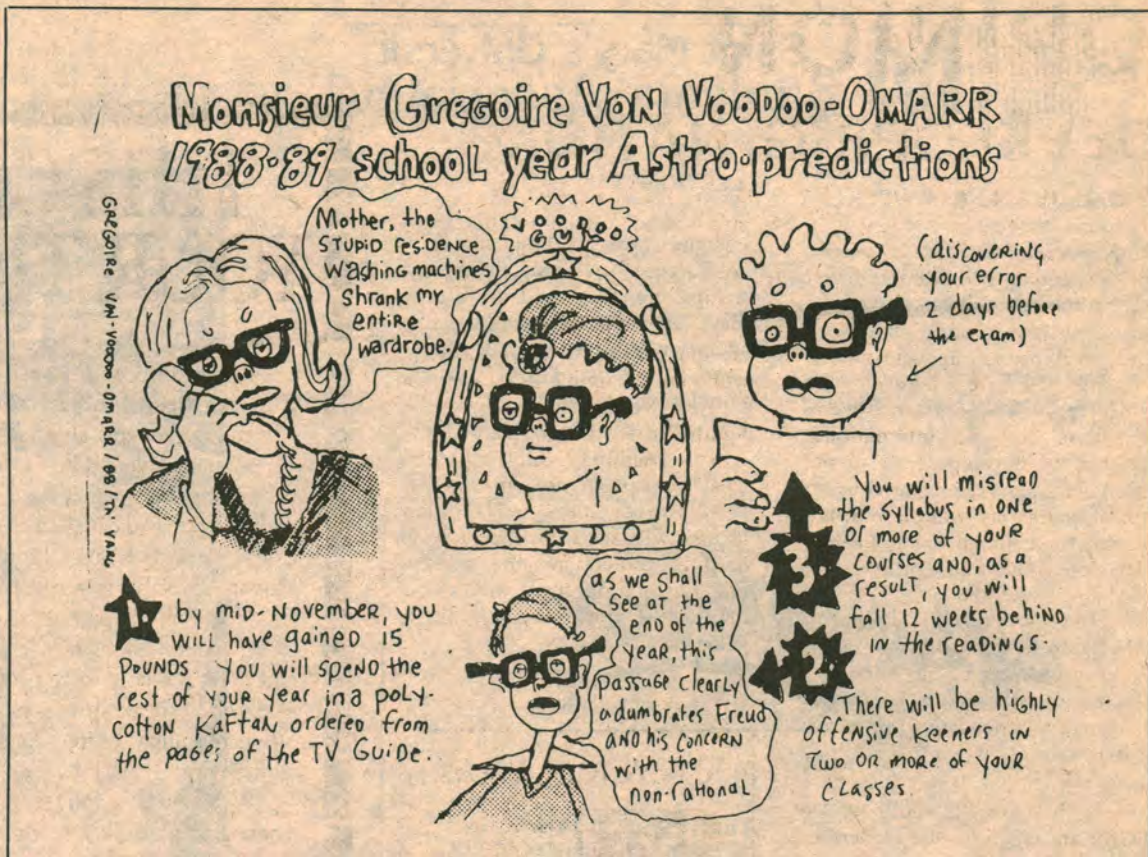 Monsieur Gregoire Von Voodoo-Omarr
1988-89 school year Astro-predictions
GREGOIRE VON-VOODOO-OMARR / 88 /
Mother, the
STUPID residence
washing machines
shrank my
entire
wardrobe.
VOODOO
GUROO
(discovering
your error
2 days before
the exam)
1. by mid-November, you
will have gained 15
pounds. You will spend the
rest of your year in a poly-
cotton Kaftan ordered from
the pages of the TV Guide.
as we shall
see at the
end of the
year, this
passage clearly
adumbrates Freud
and his concern
with the
non-rational
3.
You will misread
the syllabus in one
or more of your
courses and, as a
result, you will
fall 12 weeks behind
in the readings.
2.
There will be highly
offensive keeners in
Two or more of your
classes.